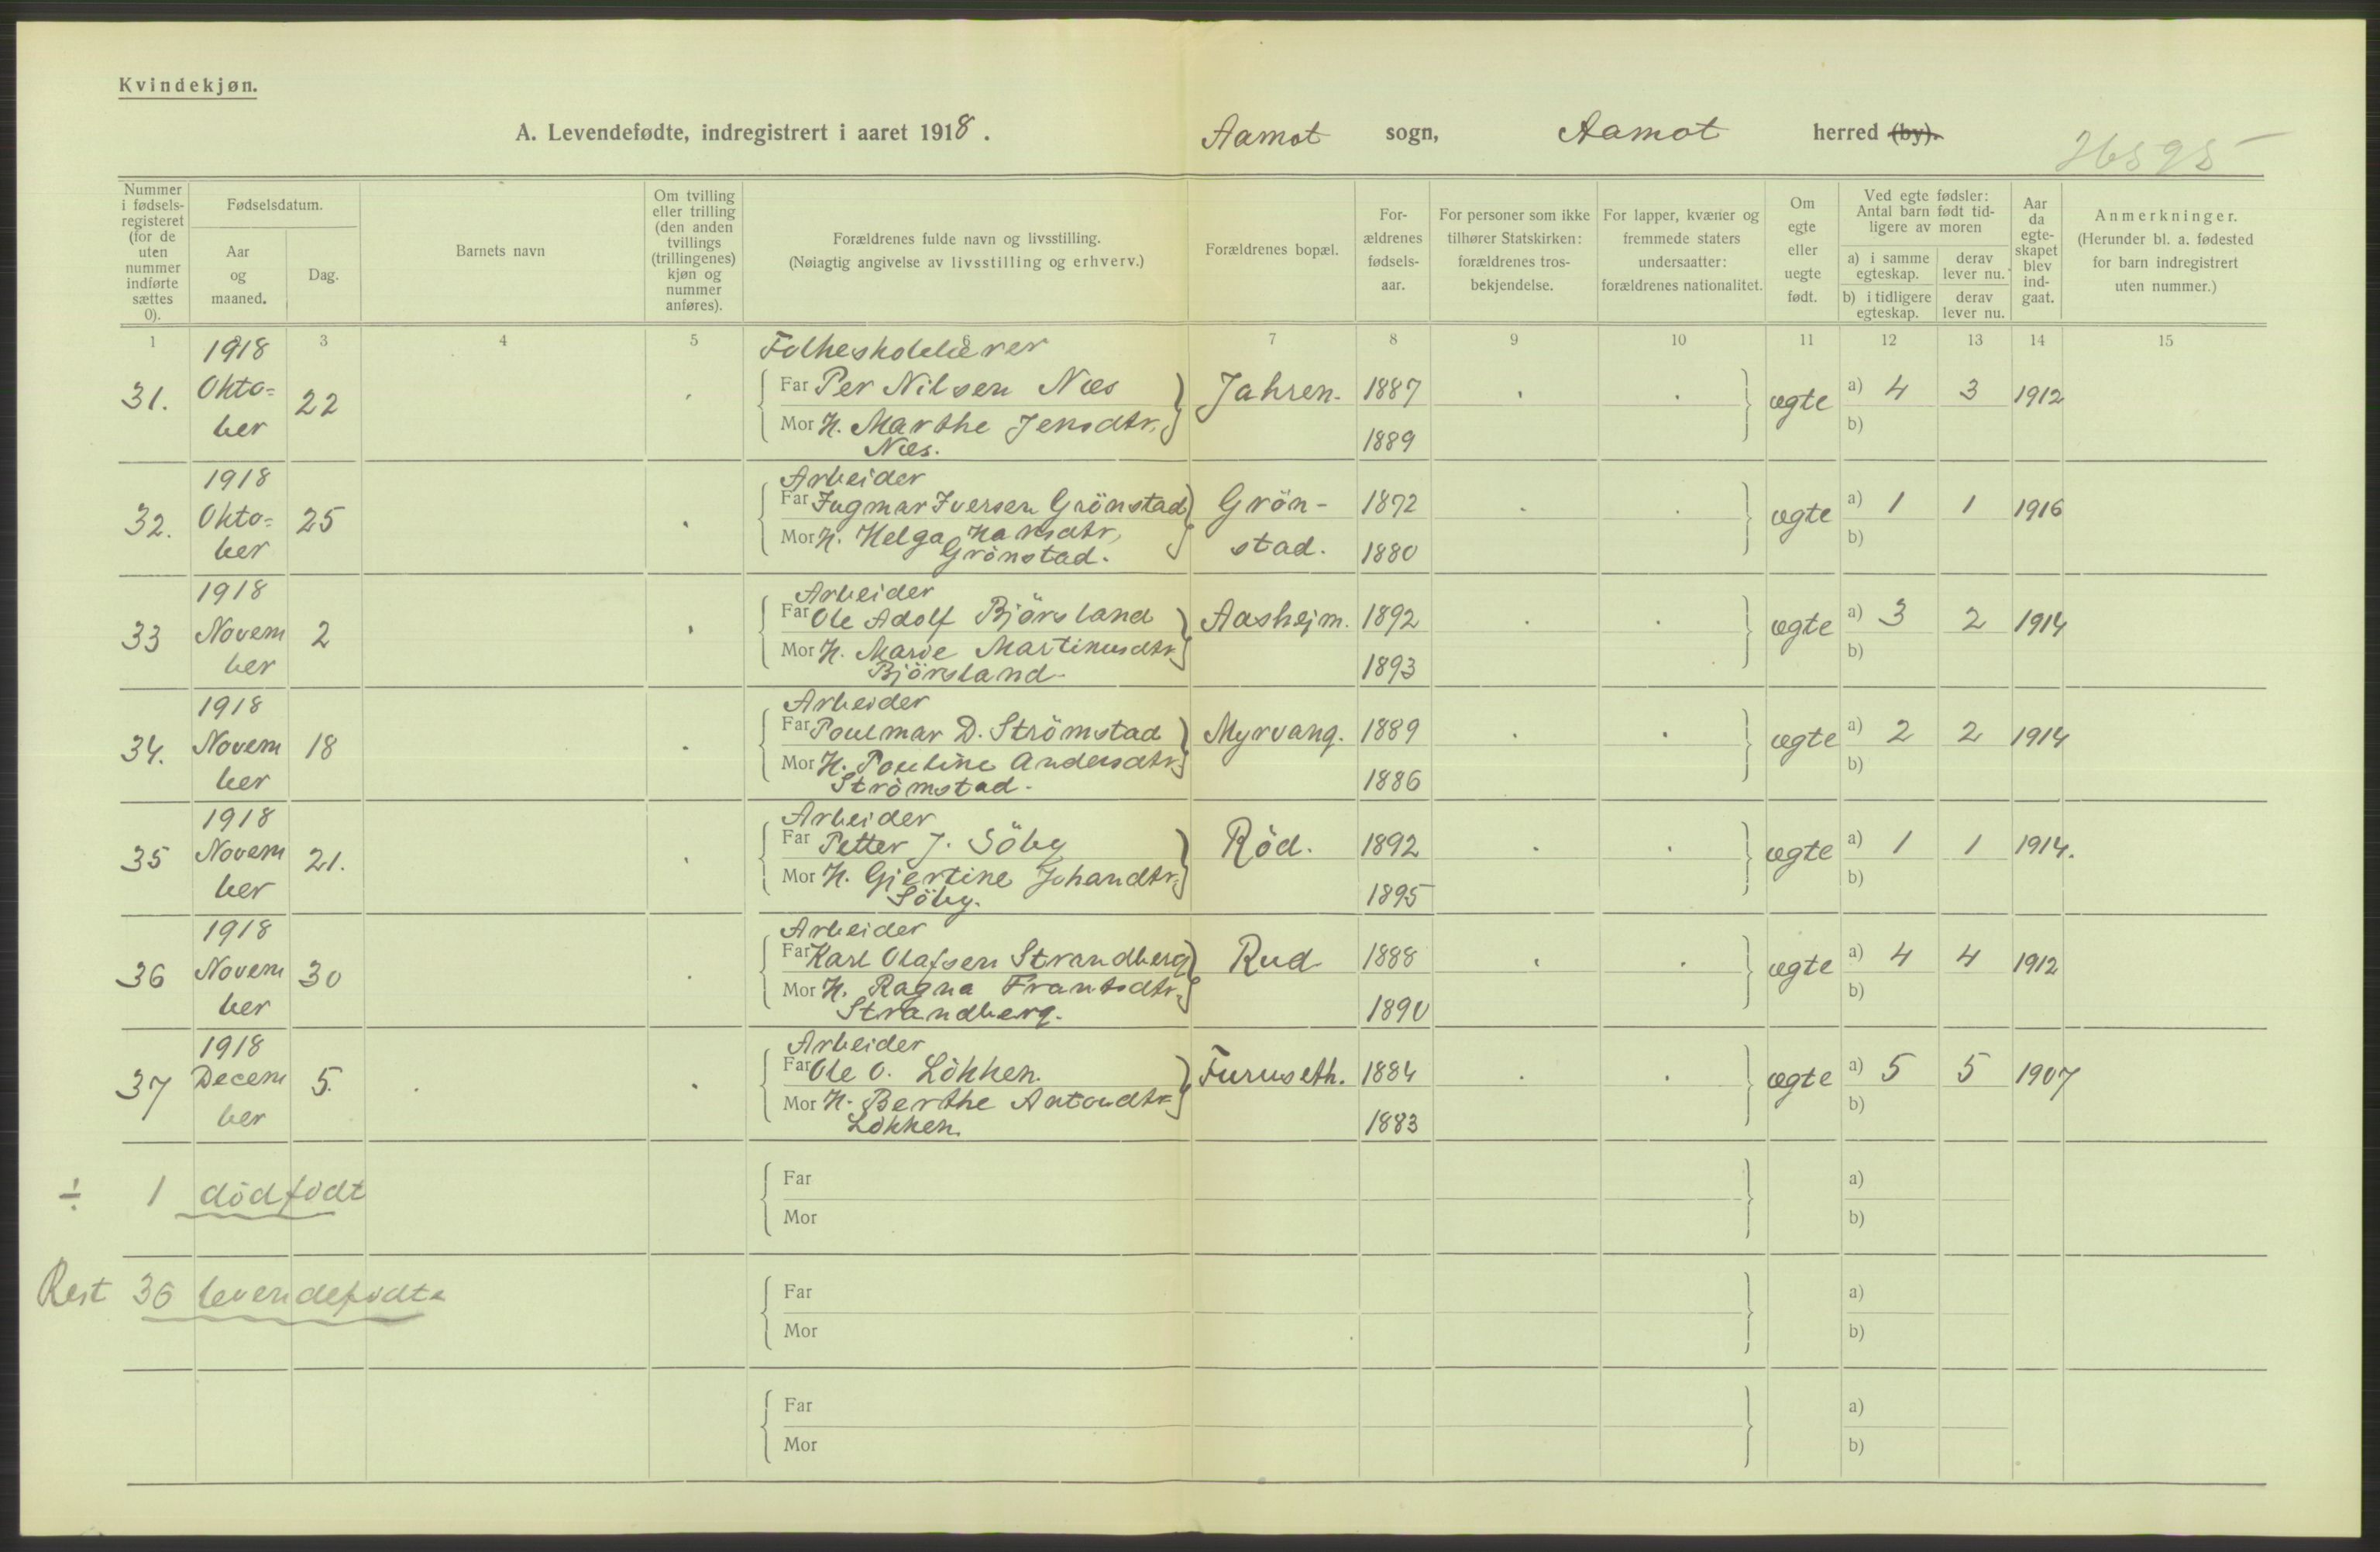 Kvindekjøn.
A. Levendefødte, indregistrert i aaret 1918. Aamot sogn, Aamot herred (by).
Nummer i fødsels-registeret (for de uten nummer indførte sættes 0).
Fødselsdatum.
Aar og maaned.
Dag.
Barnets navn
Om tvilling eller trilling (den anden tvillings (trillingenes) kjøn og nummer anføres).
Forældrenes fulde navn og livsstilling.
(Nøiagtig angivelse av livsstilling og erhverv.)
Forældrenes bopæl.
For-ældrenes fødsels-aar.
For personer som ikke tilhører Statskirken: forældrenes tros-bekjendelse.
For lapper, kvæner og fremmede staters undersaatter: forældrenes nationalitet.
Om egte eller uegte født.
Ved egte fødsler: Antal barn født tid-ligere av moren
a) i samme egteskap.
derav lever nu.
b) i tidligere egteskap.
derav lever nu.
Aar da egte-skapet blev ind-gaat.
Anmerkninger.
(Herunder bl. a. fødested for barn indregistrert uten nummer.)
1 3 4 5 7 8 9 10 11 12 13 14 15
1918 Folkeskolelærer
31. Okto= 22 Far Per Nilsen Næs Jahren. 1887 ægte a) 4 3 1912
ber Mor H. Marthe Jensdtr. 1889 b)
Næs.
1918 Arbeider
32. Okto= 25 Far Ingmar Iversen Grönstad Grön- 1872 ægte a) 1 1 1916
ber Mor H. Helga Hansdtr. stad. 1880 b)
Grönstad.
1918 Arbeider
33 Novem 2 Far Ole Adolf Björsland Aashejm. 1892 ægte a) 3 2 1914
ber Mor H. Marie Martinusdtr 1893 b)
Björsland.
1918 Arbeider
34. Novem 18 Far Poulmar D. Strömstad Myrvang. 1889 ægte a) 2 2 1914
ber Mor H. Pouline Andersdtr. 1886 b)
Strömstad.
1918 Arbeider
35 Novem 21. Far Petter J. Söby Röd. 1892 ægte a) 1 1 1914.
ber Mor H. Gjertine Johandtr. 1895 b)
Söby.
1918 Arbeider
36 Novem 30 Far Karl Olafsen Strandberg Rud 1888 ægte a) 4 4 1912
ber Mor H. Ragna Frantsdtr. 1890 b)
Strandberg.
1918 Arbeider
37 Decem 5. Far Ole O. Lökken. Furuseth. 1884 ægte a) 5 5 1907
ber Mor H. Berthe Antondtr. 1883 b)
Lökken.
÷ 1 dödfödt Far a)
Mor b)
Rest 36 levendefödte Far a)
Mor b)
Far a)
Mor b)